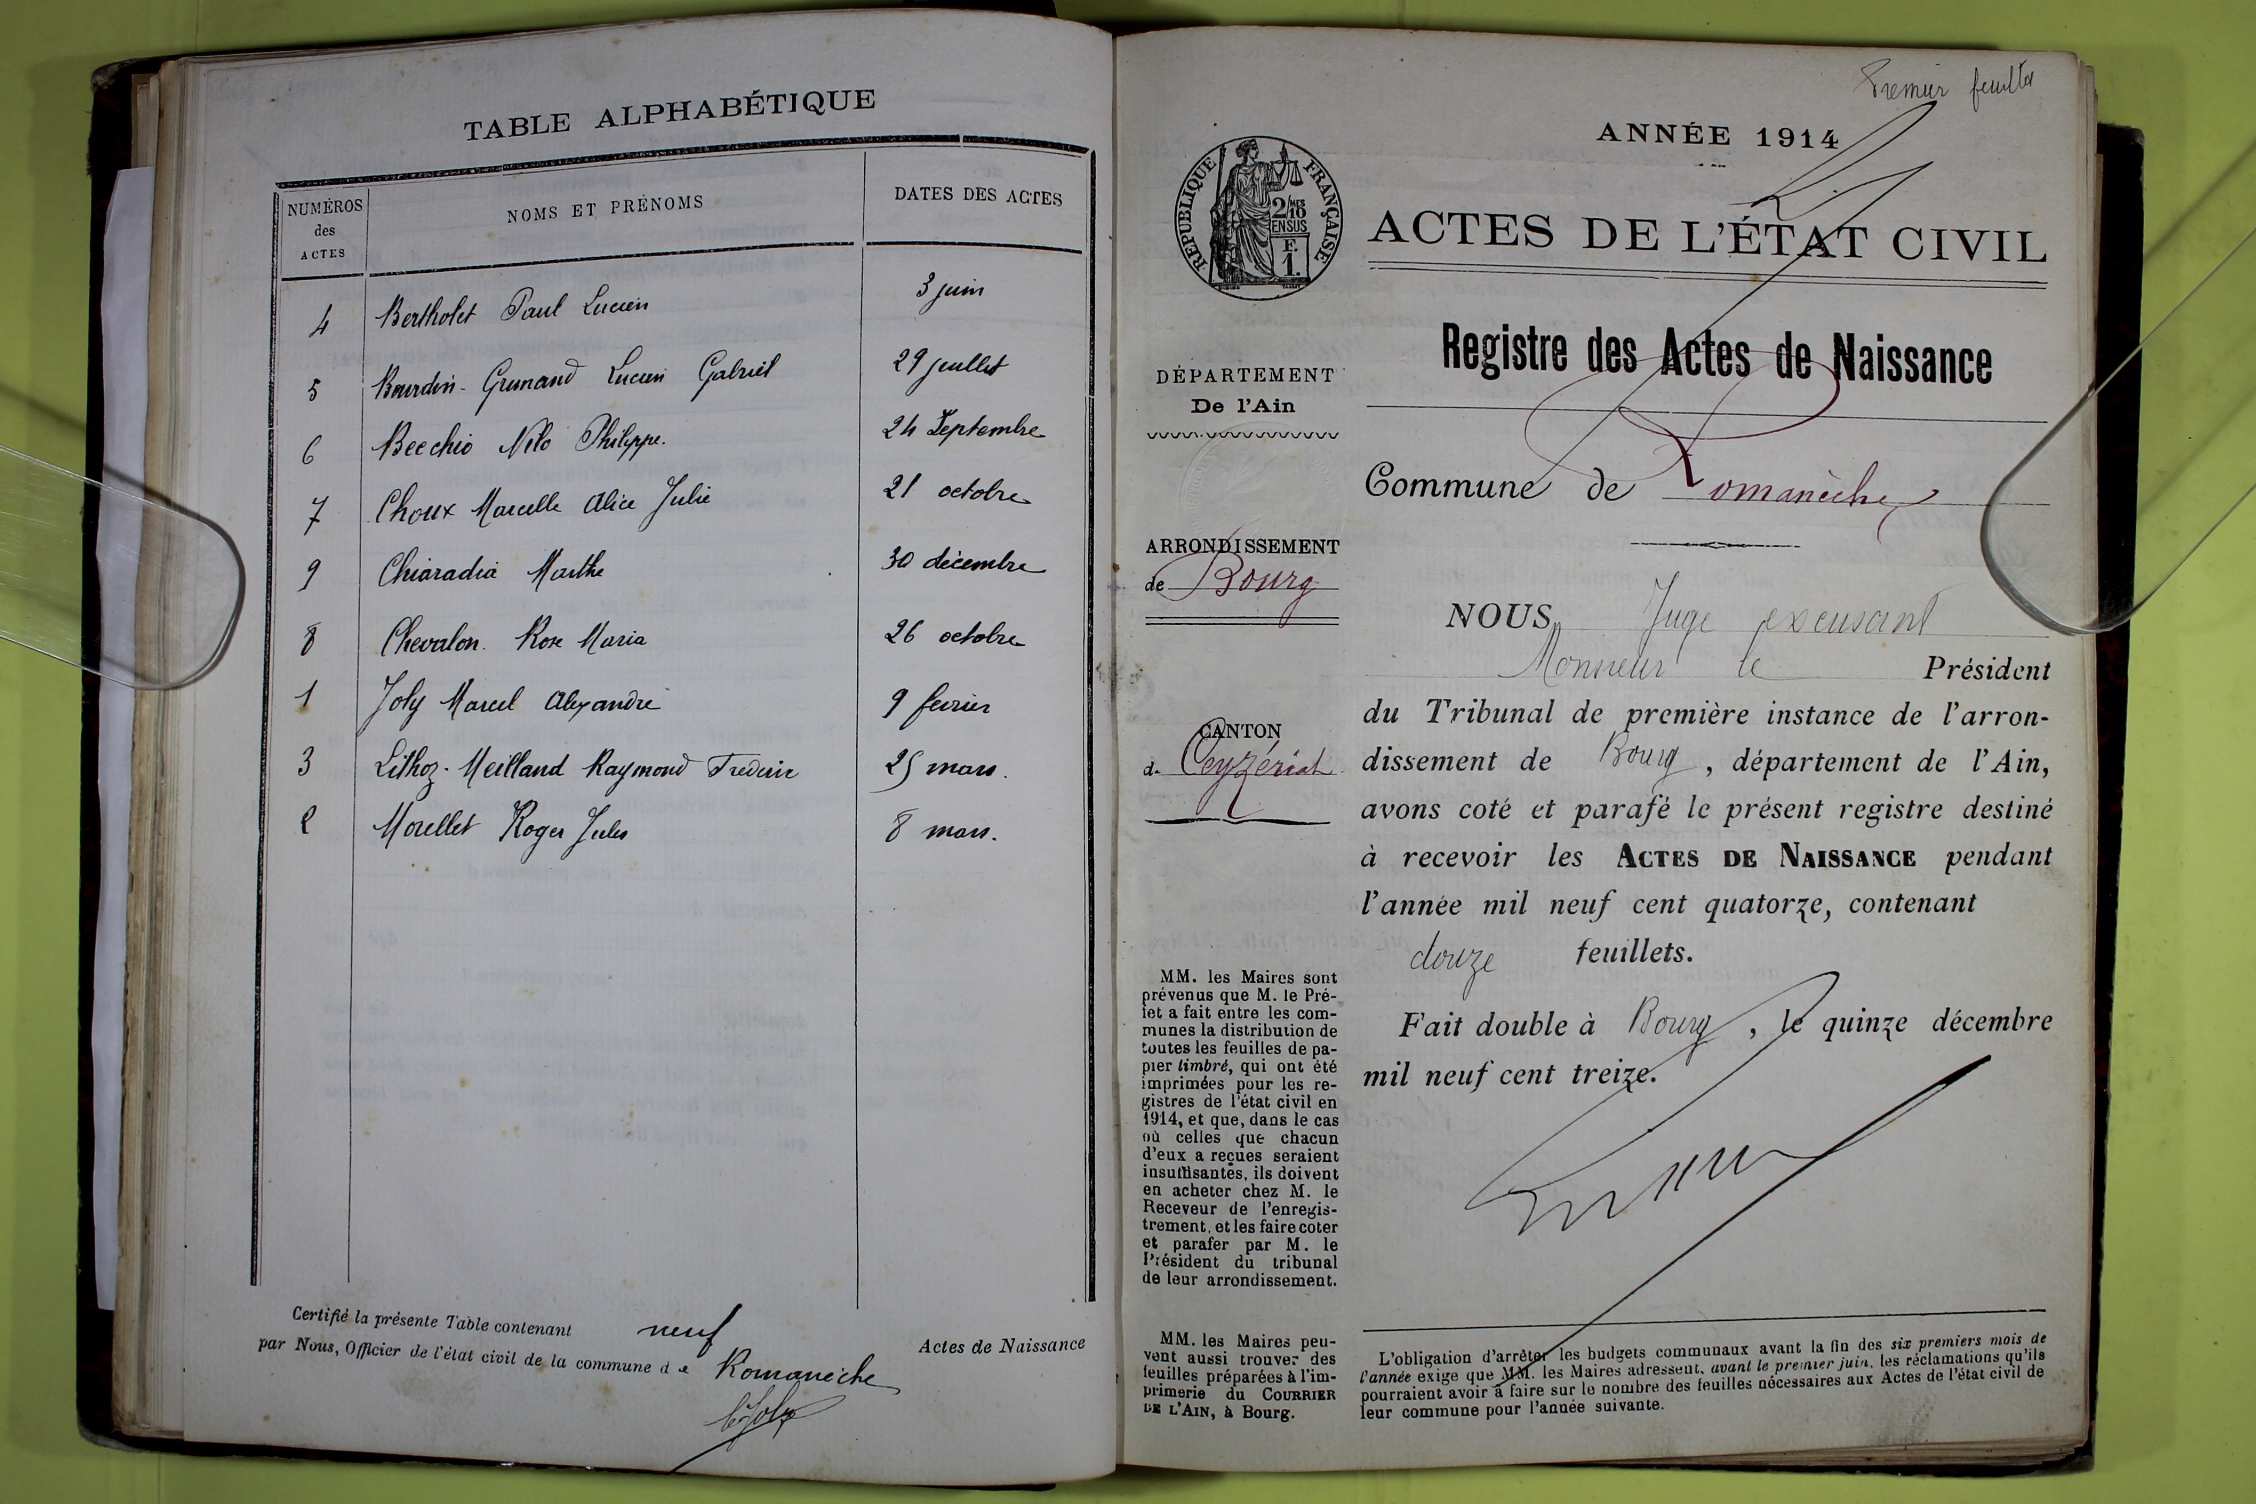 TABLE ALPHABÉTIQUE
NUMÉROS des ACTES
NOMS ET PRÉNOMS
DATES DES ACTES
4 Bertholet Paul Lucien 3 juin
5 Bourdin-Grimand Lucien Gabriel 29 juillet
6 Becchio Nilo Philippe. 24 Septembre
7 Choux Marcelle Alice Julie 21 octobre
9 Chiaradia Marthe 30 décembre
8 Chevalon Rose Maria 26 octobre
1 Joly Marcel Alexandre 9 février
3 Lithoz-Meilland Raymond Frédéric 25 mars.
2 Morellet Roger Jules 8 mars.
Certifié la présente Table contenant neuf Actes de Naissance
par Nous, Officier de l'état civil de la commune de Romanèche
Joly
Premier feuillet
ANNÉE 1914
RÉPUBLIQUE FRANÇAISE
2/10 EN SUS
F. 1.
ACTES DE L'ÉTAT CIVIL
Registre des Actes de Naissance
DÉPARTEMENT
De l'Ain
Commune de Romanèche
ARRONDISSEMENT
de Bourg
CANTON
de Ceyzériat
NOUS, Juge excusant
Monsieur le Président
du Tribunal de première instance de l'arron-
dissement de Bourg, département de l'Ain,
avons coté et parafé le présent registre destiné
à recevoir les ACTES DE NAISSANCE pendant
l'année mil neuf cent quatorze, contenant
douze feuillets.
Fait double à Bourg, le quinze décembre
mil neuf cent treize.
MM. les Maires sont
prévenus que M. le Pré-
fet a fait entre les com-
munes la distribution de
toutes les feuilles de pa-
pier timbré, qui ont été
imprimées pour les re-
gistres de l'état civil en
1914, et que, dans le cas
où celles que chacun
d'eux a reçues seraient
insuffisantes, ils doivent
en acheter chez M. le
Receveur de l'enregis-
trement, et les faire coter
et parafer par M. le
Président du tribunal
de leur arrondissement.
MM. les Maires peu-
vent aussi trouver des
feuilles préparées à l'im-
primerie du COURRIER
DE L'AIN, à Bourg.
L'obligation d'arrêter les budgets communaux avant la fin des six premiers mois de
l'année exige que MM. les Maires adressent, avant le premier juin, les réclamations qu'ils
pourraient avoir à faire sur le nombre des feuilles nécessaires aux Actes de l'état civil de
leur commune pour l'année suivante.